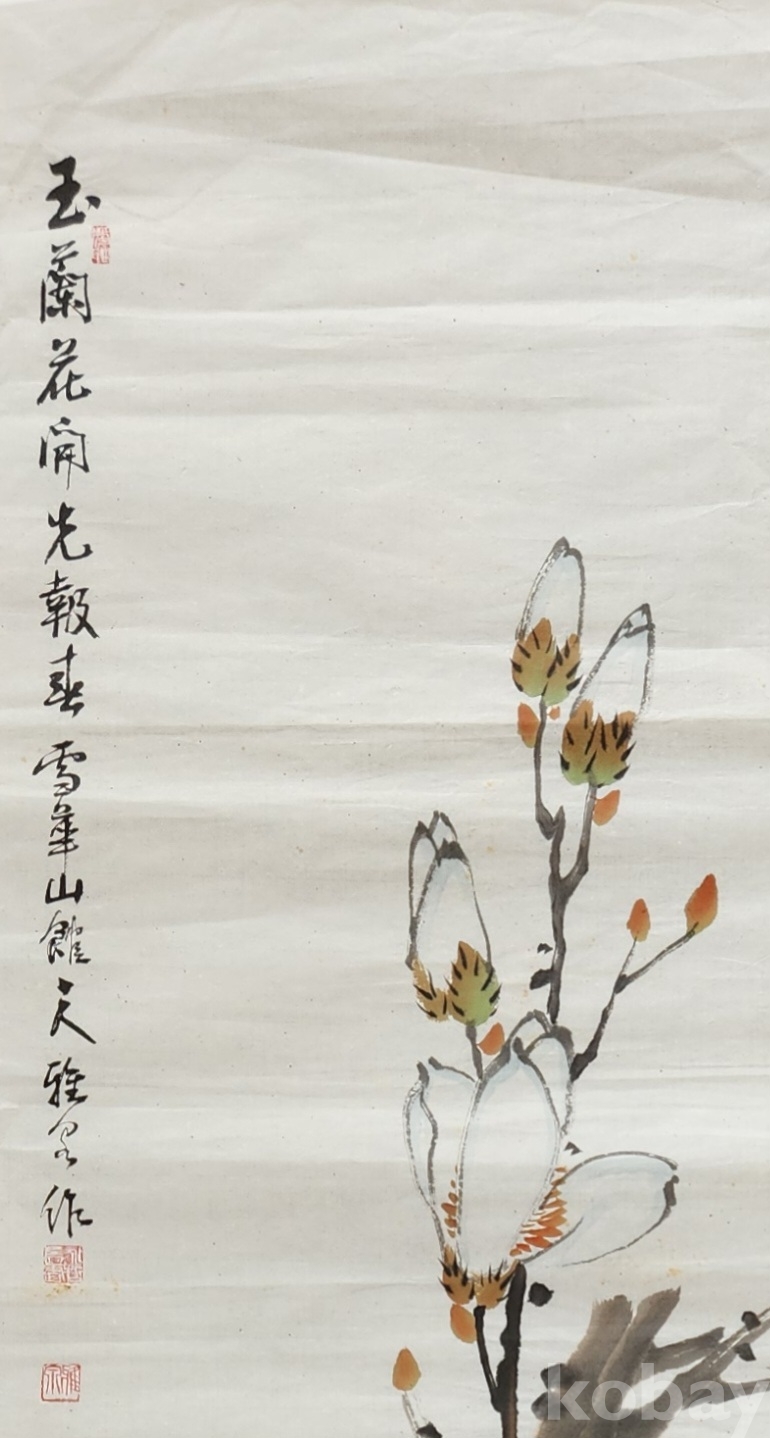 玉蘭花開先報春 雪華山館 天雅
作
kobay